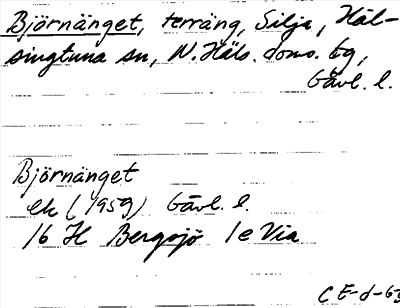 Björnänget, terräng, Silja, Häl-
singtuna sn, N. Häls. doms. tg,
Gävl. l.
Björnänget
ek (1959) Gävl. l.
16 H Bergsjö 1e Via
CE-d-63